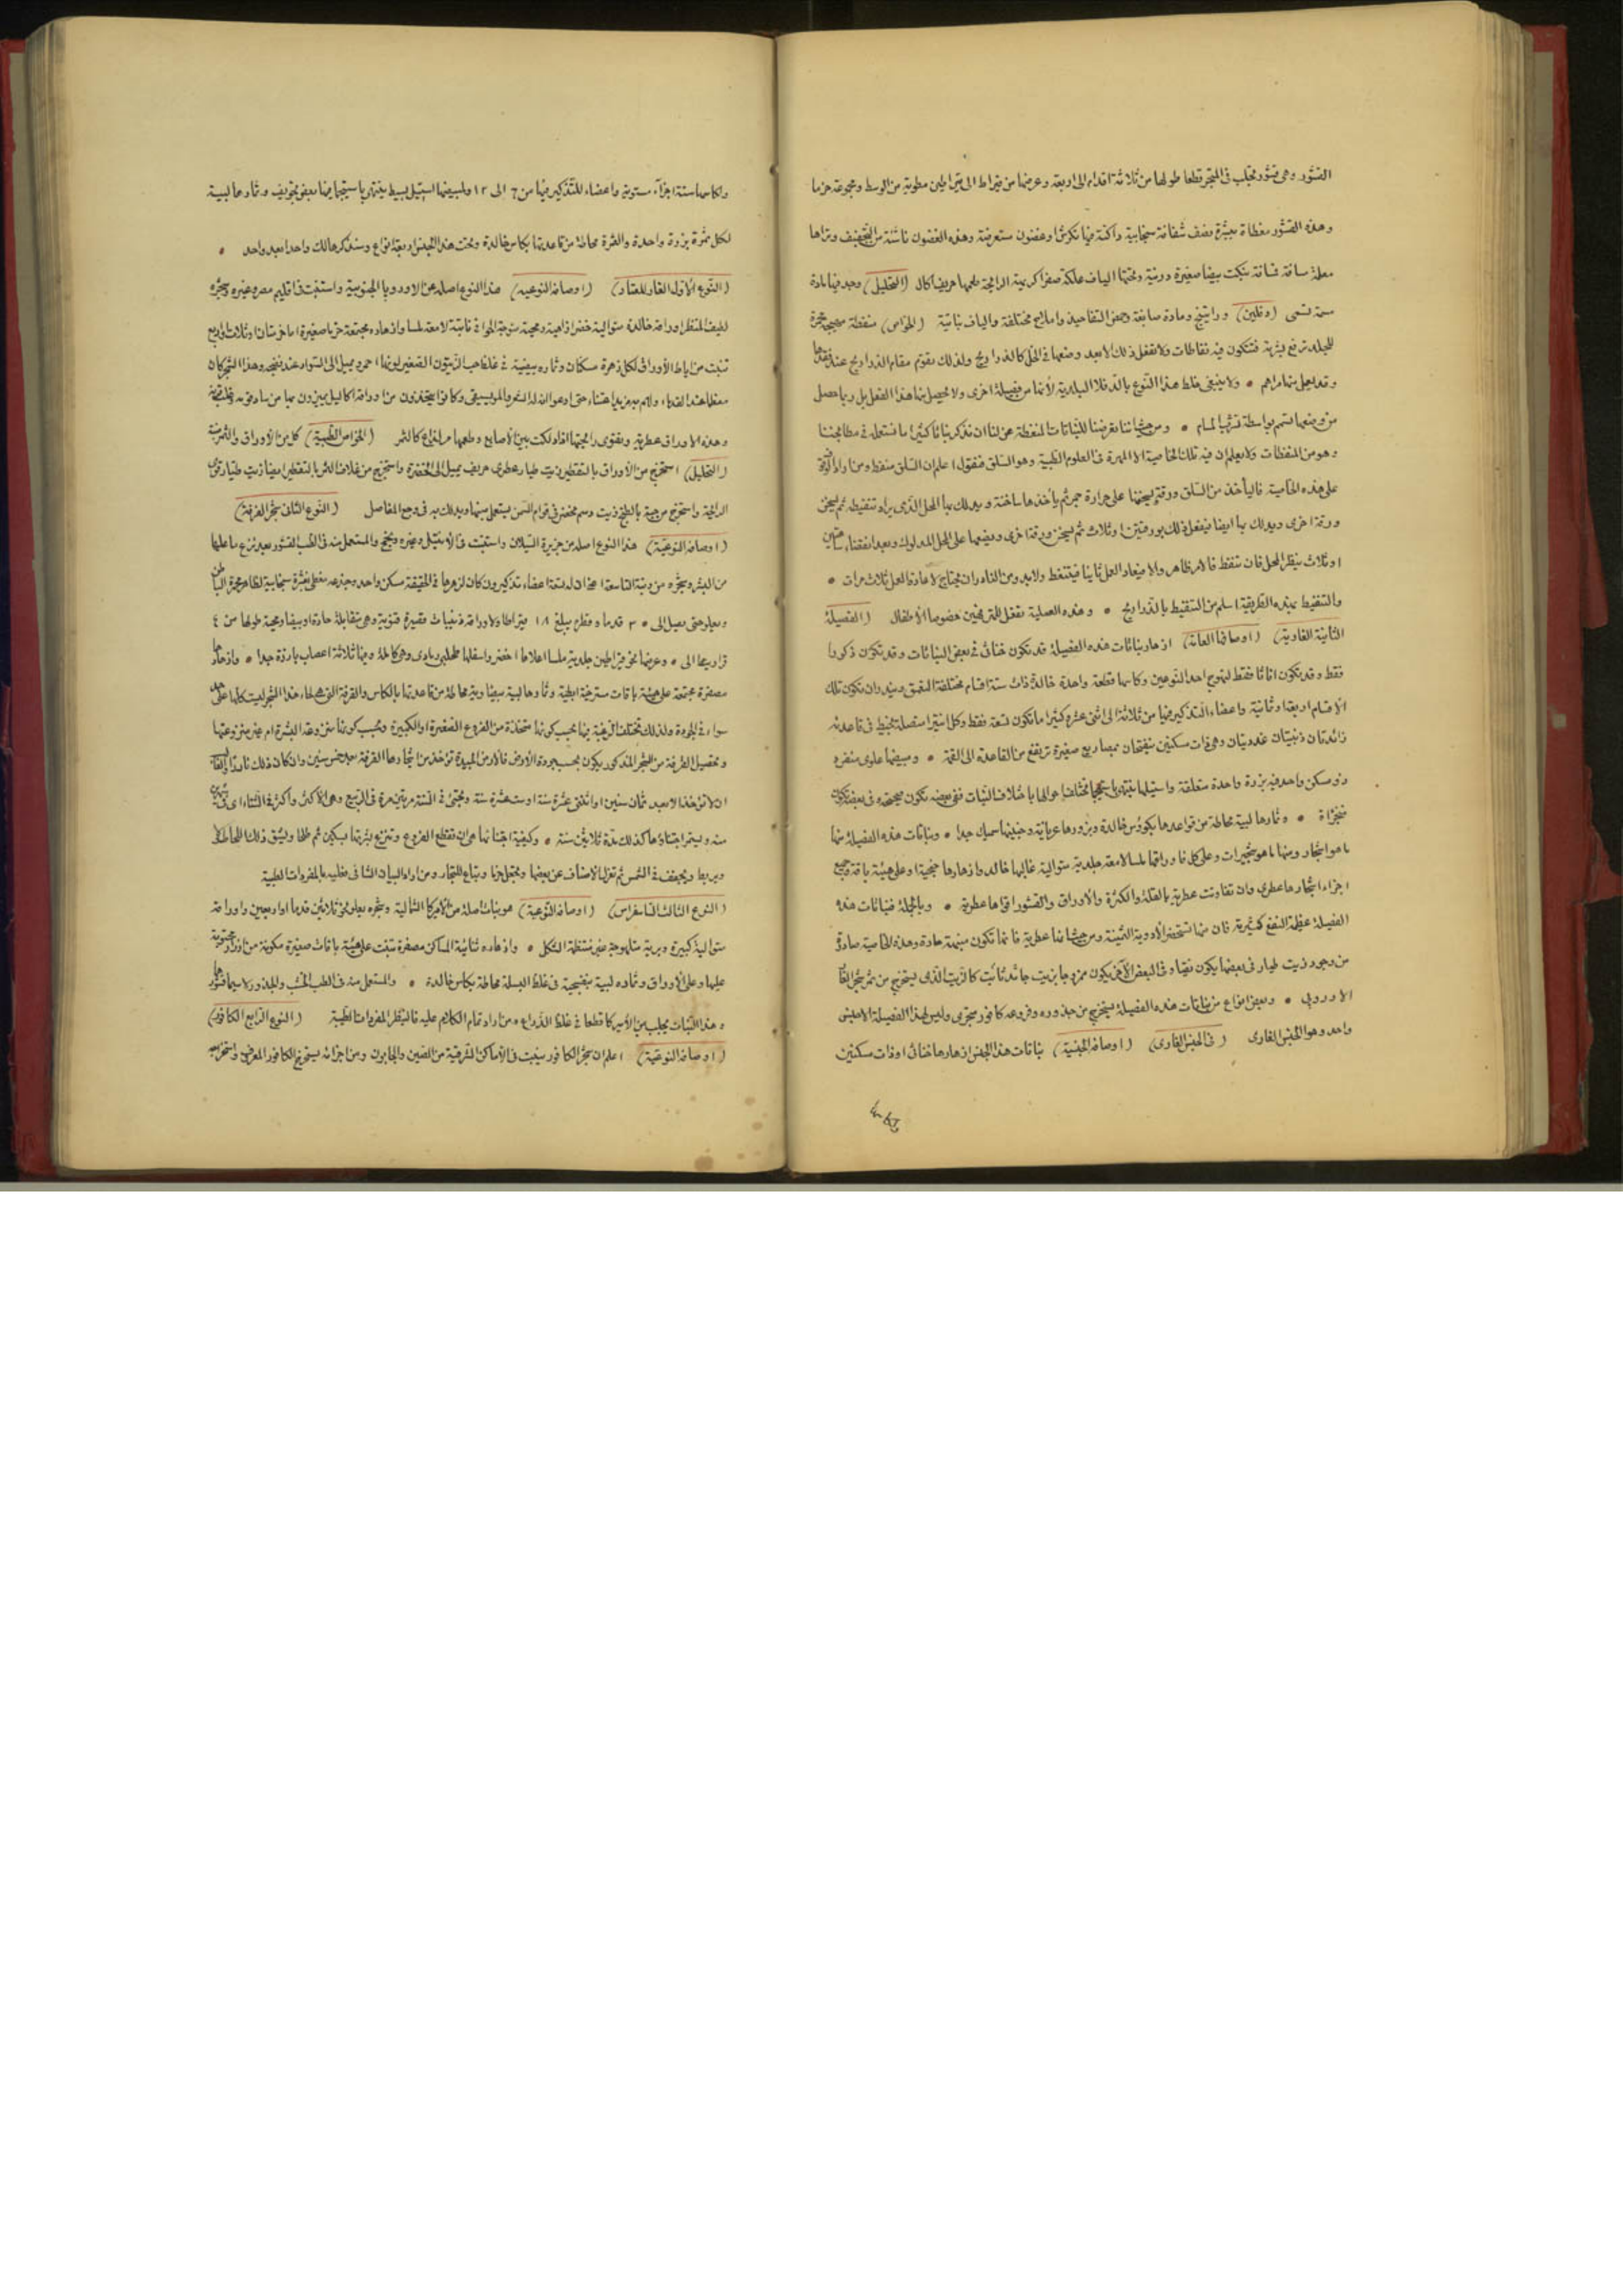 القشور وهى قشور تجلب فى المتجر قطعا طولها من ثلاثة اقدام الى اربعة وعرضها من قيراط الى قيراطين مطوية من الوسط ومجموعة حزما
وهذه القشور مغطاة ببشرة نصف شفافة سنجابية داكنة فيها تكرش او غضون مستعرضة وهذه الغضون ناشئة من التجفيف وتراها
معلمة مسافة فمسافة بنكت بيضا صغيرة درنية وتحتها الياف علكة صفرا كريهة الرايحة طعمها حريف اكال (التحليل) وجد فيها مادة
مرة تسمى (دفلين) وراتينج ومادة صابغة وحمض التفاحيك واملاح مختلفة والياف نباتية (الخواص) منفطة مهيجة محمرة
للجلد ترفع البشرة فتتكون فيه نفاطات ولا تفعل ذلك الا بعد وضعها فى الخل كالذراريح ولذلك يقوم مقام الذراريح عند فقدها
وقد يعمل منها مراهم • ولا ينبغى خلط هذا النوع بالدفلا البلدية لأنها من فصيلة اخرى ولا يحصل منها هذا الفعل بل ربما حصل
من وضعها تسمم بواسطة تشربها المسام • ومن حيث اننا تعرضنا للنباتات المنفطة عن لنا ان نذكر نباتا كثيرا ما نستعمله فى مطابخنا
وهو من المنفطات ولا يعلم ان فيه تلك الخاصية الا المهرة فى العلوم الطبية وهو السلق فنقول اعلم ان السلق منفط ومن اراد الوقوف
على هذه الخاصية فاليأخذ من السلق ورقة يسخنها على حرارة جمر ثم يأخذها ساخنة ويدلك بها المحل الذى يراد تنفيطه ثم يسخن
ورقة اخرى ويدلك بها ايضا فيفعل ذلك بورقتين او ثلاث ثم يسخن ورقة اخرى ويضعها على المحل المدلوك وبعد انقضاء ساعتين
او ثلاث ينظر المحل فان تنفط فالامر ظاهر والا فيعاد العمل ثانيا فيتنفط ولابد ومن النادر ان يحتاج لاعادة العمل ثلاث مرات •
والتنفيط بهذه الطريقة اسلم من التنفيط بالذراريح • وهذه العملية تفعل للترفهين خصوصا الأطفال (الفصيلة
الثانية الغارية) (اوصافها العامة) ازهار نباتات هذه الفصيلة قد تكون خناثى فى بعض النباتات وقد تكون ذكورا
فقط وقد تكون اناثا فقط لتهوج احد النوعين وكاسها قطعة واحدة خالدة ذات ستة اقسام مختلفة التعمق ويندر ان تكون تلك
الاقسام اربعة او ثمانية واعضاء التذكير فيها من ثلاثة الى اثنى عشر وكثيرا ما تكون تسعة فقط وكل استير متصلة بخيط فى قاعدته
زائدتان ذنبيتان غدديتان وهى ذات سكنين ينفتحان بمصاريع صغيرة ترتفع من القاعدة الى القمة • ومبيضها علوى منفرد
ذو مسكن واحد فيه بزرة واحدة متعلقة واستيلها ينتهى باستجما تختلف احوالها باختلاف النبات ففى بعضه تكون صحيحة وفى بعضه تكون
متجزأة • وثمارها لبية محاطة من قواعدها بكؤوس خالدة وبزورها عريانة وجنينها سميك جدا • ونباتات هذه الفصيلة منها
ما هو اشجار ومنها ما هو شجيرات وعلى كل فاوراقها ملسا لامعة جلدية متوالية غالبها خالد وازهارها خيمية او على هيئة باقة وجميع
اجزاء اشجارها عطرى وان تفاوتت عطرية بالقلة والكثرة والأوراق والقشور اقواها عطرية • وبالجملة فنباتات هذه
الفصيلة عظيمة النفع كثيرته فان منها تستحضر الأدوية الثمينة ومن حيث انها عطرية فانها تكون منبهة حادة وهذه الخاصية صادرة
من وجود زيت طيار فى بعضها يكون نقيا وفى البعض الآخر يكون ممزوجا بزيت جامد ثابت كالزيت الذى يستخرج من ثمر شجر الغار
الاوروبى • وبعض انواع من نباتات هذه الفصيلة يستخرج من جذوره وفروعه كافور متجرى وليس لهذا الفصيلة الا جنس
واحد وهو الجنس الغارى (فى الجنس الغارى) (اوصافه الجنسية) نباتات هذا الجنس ازهارها خناثى او ذات سكنين
وكاسها ستة اجزآء مستوية واعضاء للتذكير فيها من ٦ الى ١٢ ولمبيضها استيل بسيط ينتهى باستجما فيها بعض تجويف وثمارها لبية
لكل ثمرة بزرة واحدة والثمرة محاطة من قاعدتها بكاس خالدة وتحت هذا الجنس اربعة انواع وسنذكرها لك واحدا بعد واحد •
(النوع الأول الغار المعتاد) (اوصافه النوعية) هذا النوع اصله من الاوروبا الجنوبية واستنبت فى اقليم مصر وغيره وشجره
لطيف المنظر اوراقه خالدة متوالية خضرا زاهية رمحية متموجة الحوافى ثابتة لامعة ملسا وازهاره مجتمعة حزما صغيرة اما ثرتان او ثلاث او اربع
تنبت من اباط الأوراق لكل زهرة سكنان وثماره بيضية فى غلظ حب الزيتون الصغير لونها احمر يميل الى السواد عند نضجه وهذا الشجر كان
معظما عند القدماء ولهم به مزيد اعتناء حتى ادعوا انه له الشعر والموسيقى وكانوا يتخذون من اوراقه اكاليل يميزون بها من سادوا
وهذه الاوراق عطرية ويقوى رايحتها اذا دلكت بين الأصابع وطعمها مر لذاع كالثمر (الخواص الطبية) كل من الأوراق والثمر منبه
(التحليل) استخرج من الأوراق بالتقطير زيت طيار عطرى حريف يميل الى الخضرة واستخرج من غلاف الثمر بالتقطير ايضا زيت طيار قوى
الرائحة واستخرج من حبه بالطبخ زيت دسم مخضر فى قوام السمن يستعمل منبها ويدلك به فى وجع المفاصل (النوع الثانى شجر القرفة)
(اوصافه النوعية) هذا النوع اصله من جزيرة السيلان واستنبت فى الأنتيل وغيره ونجح والمستعمل منه فى الطب القشور بعد نزع ما عليها
من البشره وشجره من رتبة التاسعة اعنى ان له تسعة اعضاء تذكير وان كان لزهرها فى الحقيقة مسكن واحد وجذعه مغطى بقشرة سنجابية الظاهر محمرة الباطن
ويعلو حتى يصل الى ٣٠ قدما وقطره يبلغ ١٨ قيراطا ولاوراقه ذنيبات قصيرة قنوية وهى متقابلة حادة او بيضا رمحية طولها من ٤
قراريط الى ٥ وعرضها نحو قيراطين جلدية ملسا اعلاها اخضر واسفلها طحلبى رمادى وهى كاملة وفيها ثلاثة اعصاب بارزة جدا • وازهارها
مصفرة مجتمعة على هيئة باقات مسترخية ابطية وثمارها لبية بيضاوية محاطة من قاعدتها بالكاس والقرفة التى هى لحاء هذا الشجر ليست كلها على حد
سواء فى الجودة ولذلك تختلف الرغبة فيها بحسب كونها متخذة من الفروع الصغيرة او الكبيرة وبحسب كونها منزوعة البشرة ام غير منزوعتها
وتحصيل القرفة من الشجر المذكور يكون بحسب جودة الأرض فالارض الجيدة تؤخذ من اشجارها القرفة بعد خمس سنين وان كان ذلك نادرا والغالب
ان لا تؤخذ الا بعد ثمان سنين او اثنتى عشرة سنة او ست عشرة سنة وتجتنى فى السنة مرتين مرة فى الربيع وهى الأكثر واخرى فى الشتاء
منه ويستمر اجتناؤها كذلك مدة ثلاثين سنة • وكيفية اجتنائها هى ان تقطع الفروع وتنزع بشرتها بسكين ثم طولا ويشق ذلك اللحا
ويربط ويجفف فى الشمس ثم تعزل الأصناف عن بعضها وتجعل حزما وتباع للتجار ومن اراد البيان الشافى فعليه بالمفردات الطبية
(النوع الثالث السا سفراس) (اوصافه النوعية) هو نبات اصله من الأمريكا الشمالية وشجره يعلو نحو ثلاثين قدما او اربعين واوراقه
متوالية كبيرة وبرية متموجة غير منتظمة الشكل • وازهاره ثنائية المسكن مصفرة تنبت على هيئة باقات صغيرة مكونة من ازرار محتوية
عليها وعلى الأوراق وثماره لبية بنفسجية فى غلظ البسلة محاطة بكاس خالدة • والمستعمل منه فى الطب الخشب والجذور لا سيما قشورها
وهذا النبات يجلب من الأمريكا قطعا فى غلظ الذراع ومن اراد تمام الكلام عليه فالينظر المفردات الطبية (النوع الرابع الكافور)
(اوصافه النوعية) اعلم ان شجر الكافور ينبت فى الأماكن الشرقية من الصين والجابون ومن اجزائه يستخرج الكافور المعروف واستخراجه